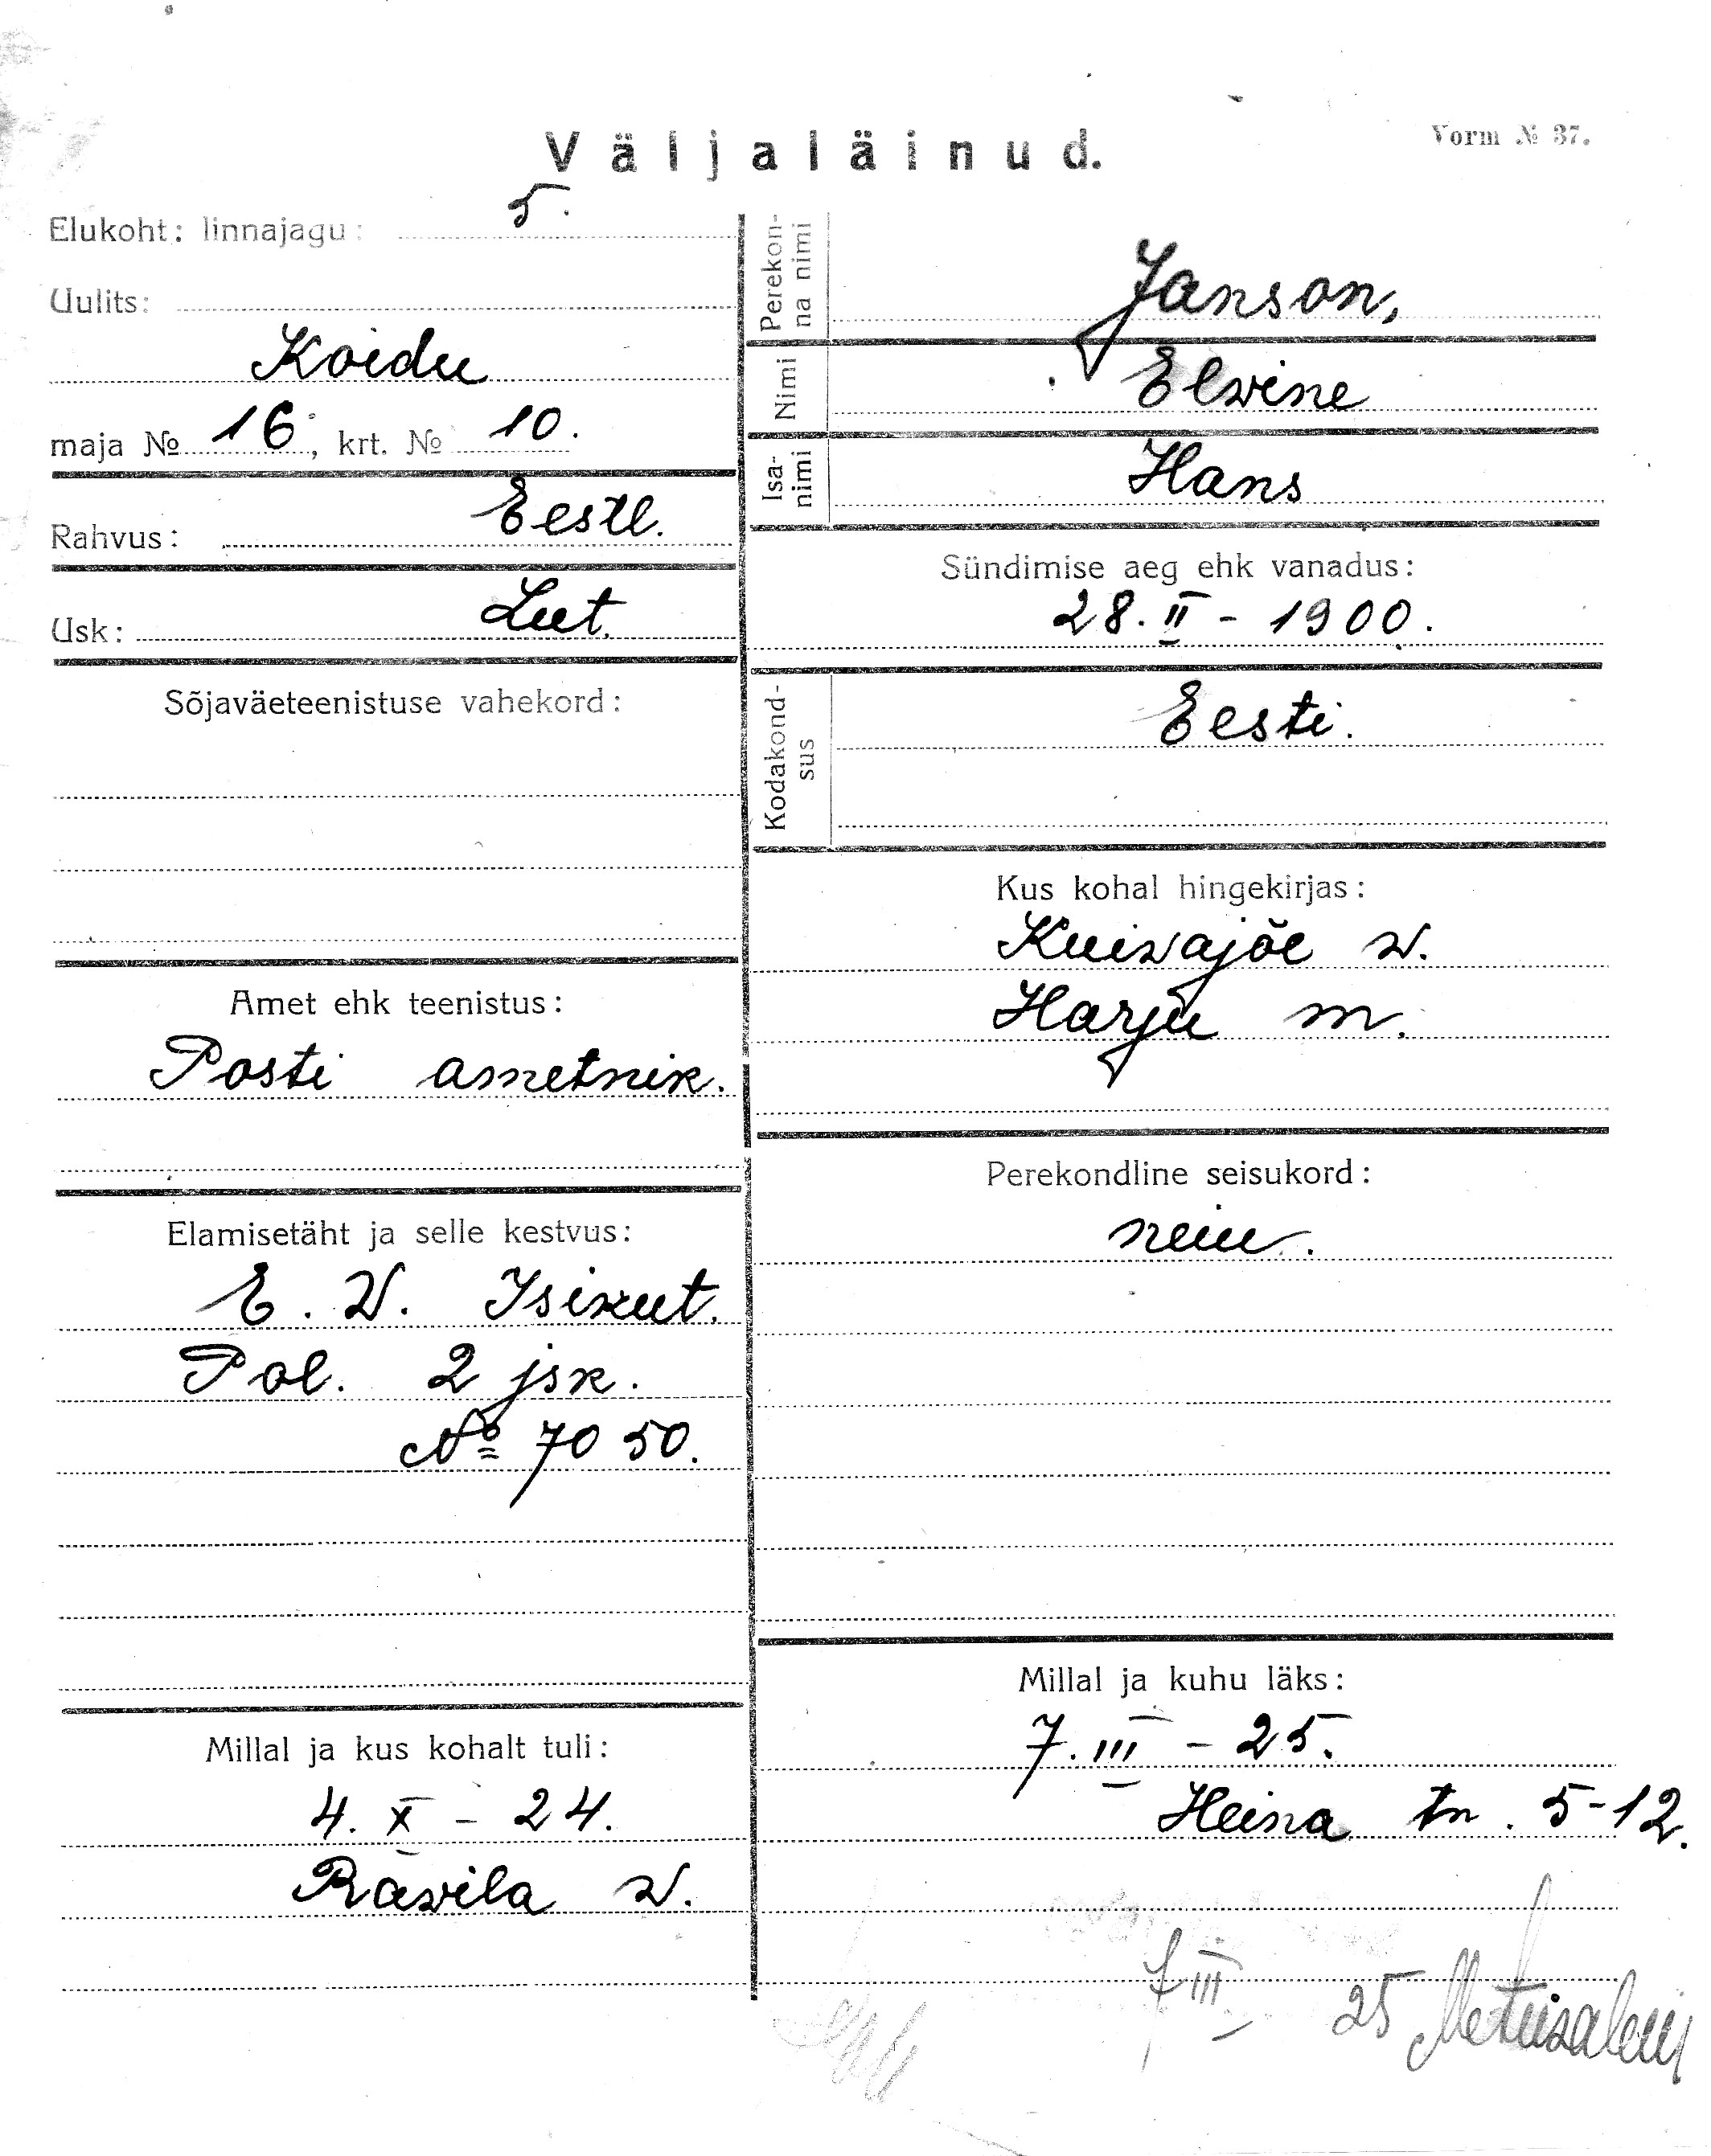 Väljaläinud.
Vorm № 37.
Elukoht: linnajagu: 5.
Uulits:
Koidu
maja № 16, krt. № 10.
Rahvus: Eestl.
Usk: Lut.
Sõjaväeteenistuse vahekord:
Amet ehk teenistus:
Posti ametnik.
Elamisetäht ja selle kestvus:
E. W. Isikut.
Pol. 2 jsk.
№ 7050.
Millal ja kus kohalt tuli:
4. X - 24.
Rawila w.
Perekonna nimi Janson,
Nimi Elwine
Isanimi Hans
Sündimise aeg ehk vanadus:
28. II - 1900.
Kodakondsus Eesti.
Kus kohal hingekirjas:
Kuiwajõe w.
Harju m.
Perekondline seisukord:
neiu.
Millal ja kuhu läks:
7. III - 25.
Heina tn. 5-12.
7 III 25